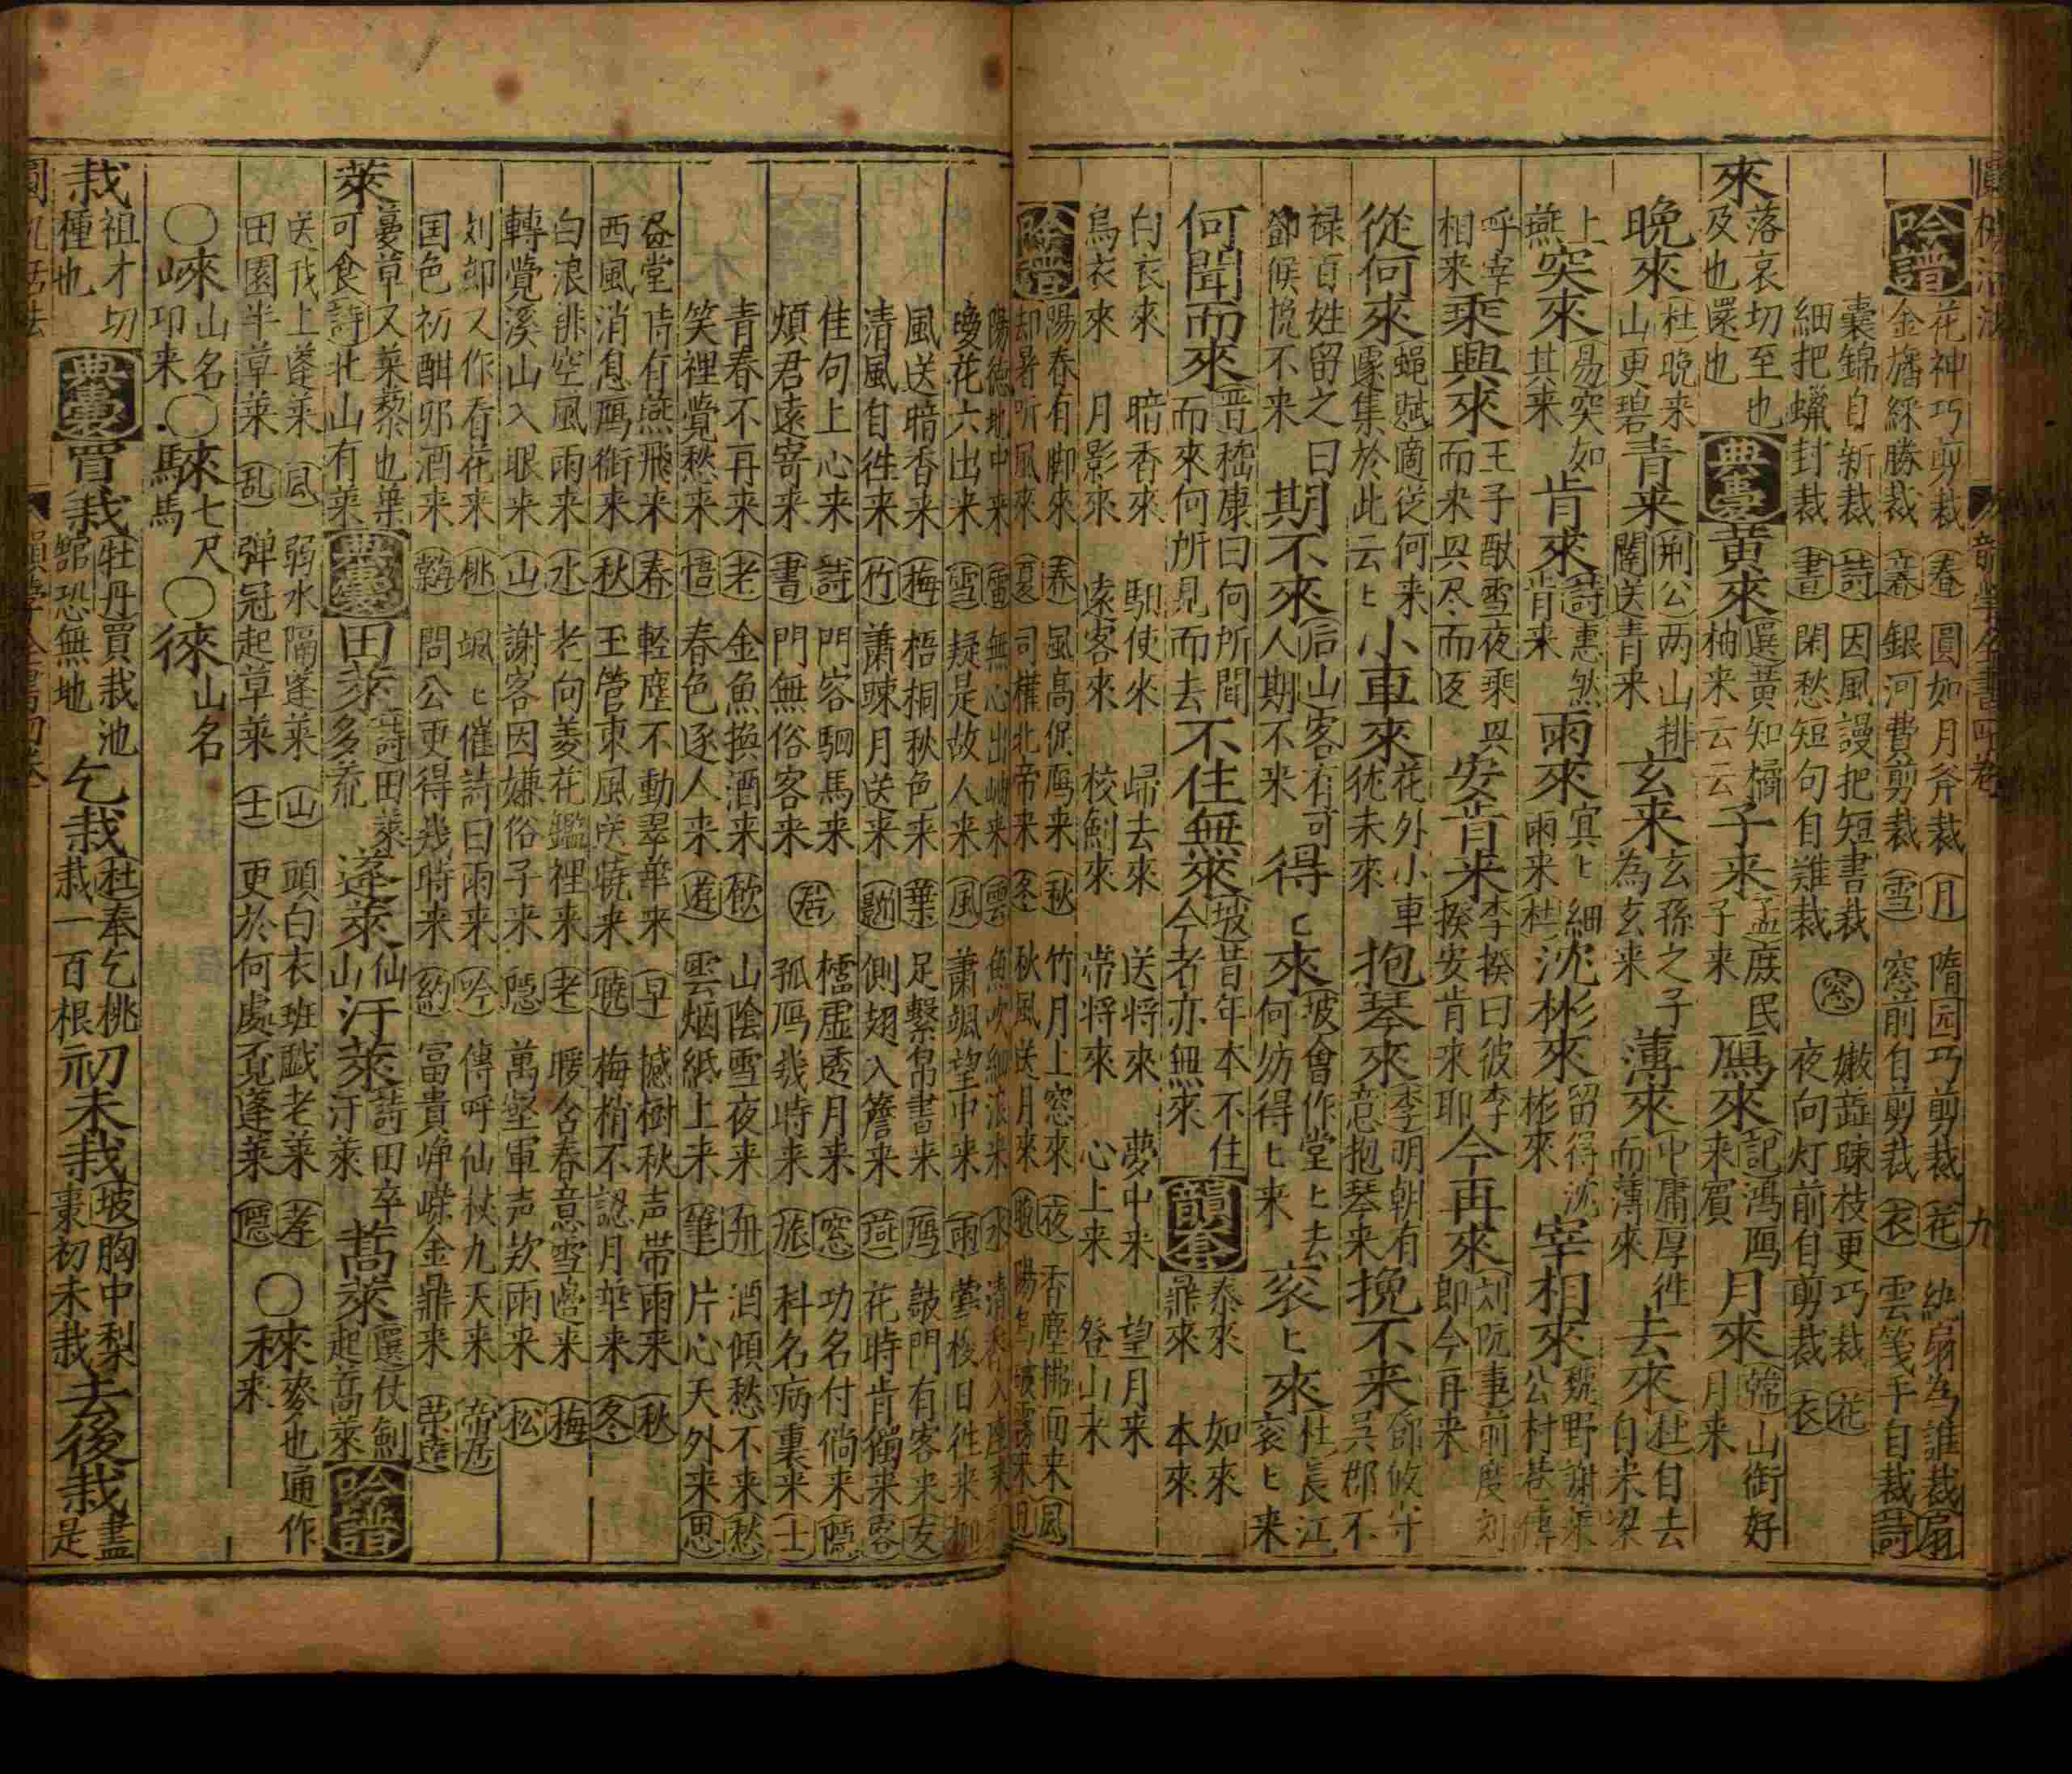 吟譜
花神巧剪裁 春 圓如月斧裁 月 隋园巧剪裁 花 紈扇為誰裁 扇
金旛綵勝裁 春 銀河費剪裁 雪 窓前自剪裁 衣 雲箋手自裁 詩
囊錦自新裁 詩 因風謾把短書裁 窓 嫩蕋踈枝更巧裁 花
細把蠟封裁 書 閑愁短句自難裁 夜向灯前自剪裁 衣
來 落哀切至也及也還也 典要 黄來 選黄知橘柚来云云 子来 孟庶民子来 鴈來 記鴻鴈来賓 月來 韓山衙好月来
晩來 杜晩来山更碧 青来 荆公两山排闥送青来 玄来 玄孫之子為玄来 薄來 中庸厚徃而薄來 去來 杜自去自来梁
上燕 突來 易突如其来 肯來 詩惠然肯来 雨來 冥ヒ細雨来杜 沈彬來 留得沈彬來 宰相來 魏野謝寇公村巷傳
呼宰相来 乘興來 王子猷雪夜乘興而来興尽而返 安肯来 李揆曰彼李揆安肯来耶 今再來 刘阮事前度刘郎今再来
從何來 蠅賦適従何来遽集於此云ヒ 小車來 花外小車犹未來 抱琴來 李明朝有意抱琴来 挽不来 邵攸守吳郡不
禄百姓留之曰鄧侯挽不来 期不來 后山客有可人期不来 得ヒ來 坡會作堂ヒ去何妨得ヒ来 衮ヒ來 杜長江衮ヒ来
何聞而來 晋嵇康曰何所聞而來何所見而去 不住無來 坡昔年本不住今者亦無來 韻套 泰來 如來 鼎來 本來
白衣來 暗香來 馹使來 歸去來 送將來 夢中来 望月来
烏衣來 月影來 遠客來 校劍來 常将來 心上来 登山来
吟譜
陽春有脚來 春 風高促鴈来 秋 竹月上窓來 夜 香塵拂面来 風
却暑听風來 夏 司權北帝来 冬 秋風送月来
陽德地中来 雷 無心出岫来 雲 魚吹細浪来 水
瓊花六出来 雪 疑是故人来 風 蕭颯望中来 雨 鶯梭日徃来 柳
風送暗香来 梅 梧桐秋色来 葉 足繫帛書来 鴈 鼓門有客来 友
清風自徃来 竹 蕭踈月送来 側翅入簷来 燕 花時肯獨来 客
佳句上心来 詩 門容駟馬来 君 櫺虚透月来 窓 功名付倘来 隱
煩君遠寄来 書 門無俗客来 孤鴈幾時来 旅 科名病裏来 士
青春不再来 老 金魚換酒来 飲 山陰雪夜来 舟 酒傾愁不来 愁
笑裡覺愁来 悟 春色逐人来 遊 雲烟紙上来 筆 片心天外来 思
画堂時有燕飛来 春 輕塵不動翠華来 早 撼樹秋声带雨来 秋
西風消息鴈銜来 秋 玉管東風送暁来 暁 梅梢不認月華来 冬
白浪排空風雨来 水 老向菱花鑑裡来 老 暖含春意雪邉来 梅
轉覺溪山入眼来 山 謝客因嫌俗子来 隱 萬壑軍声欻雨来 松
刘郎又作看花来 桃 颯ヒ催詩白雨来 吟 傳呼仙杖九天来 帝居
国色初酣卯酒来 問公更得幾時来 約 富貴峥嶸金鼎来
萊 蔓草又萊藜也可食詩北山有萊 典要 田萊 詩田萊多荒 蓬萊 仙山 汙萊 詩田卒汙萊 蒿萊 選仗劍起蒿萊 吟譜
送我上蓬萊 風 弱水隔蓬萊 山 頭白衣班戯老萊 孝
田園半草萊 乱 彈冠起草萊 士 更於何處覓蓬萊 隱 〇 䅘 麥也通作来
〇 崍 山名邛来 〇 騋 七尺馬 〇 徠 山名
栽 祖才切種也 典要 買栽 牡丹買栽池舘恐無地 乞栽 杜奉乞桃栽一百根 初未栽 坡胸中梨棗初未栽 去後栽 盡是